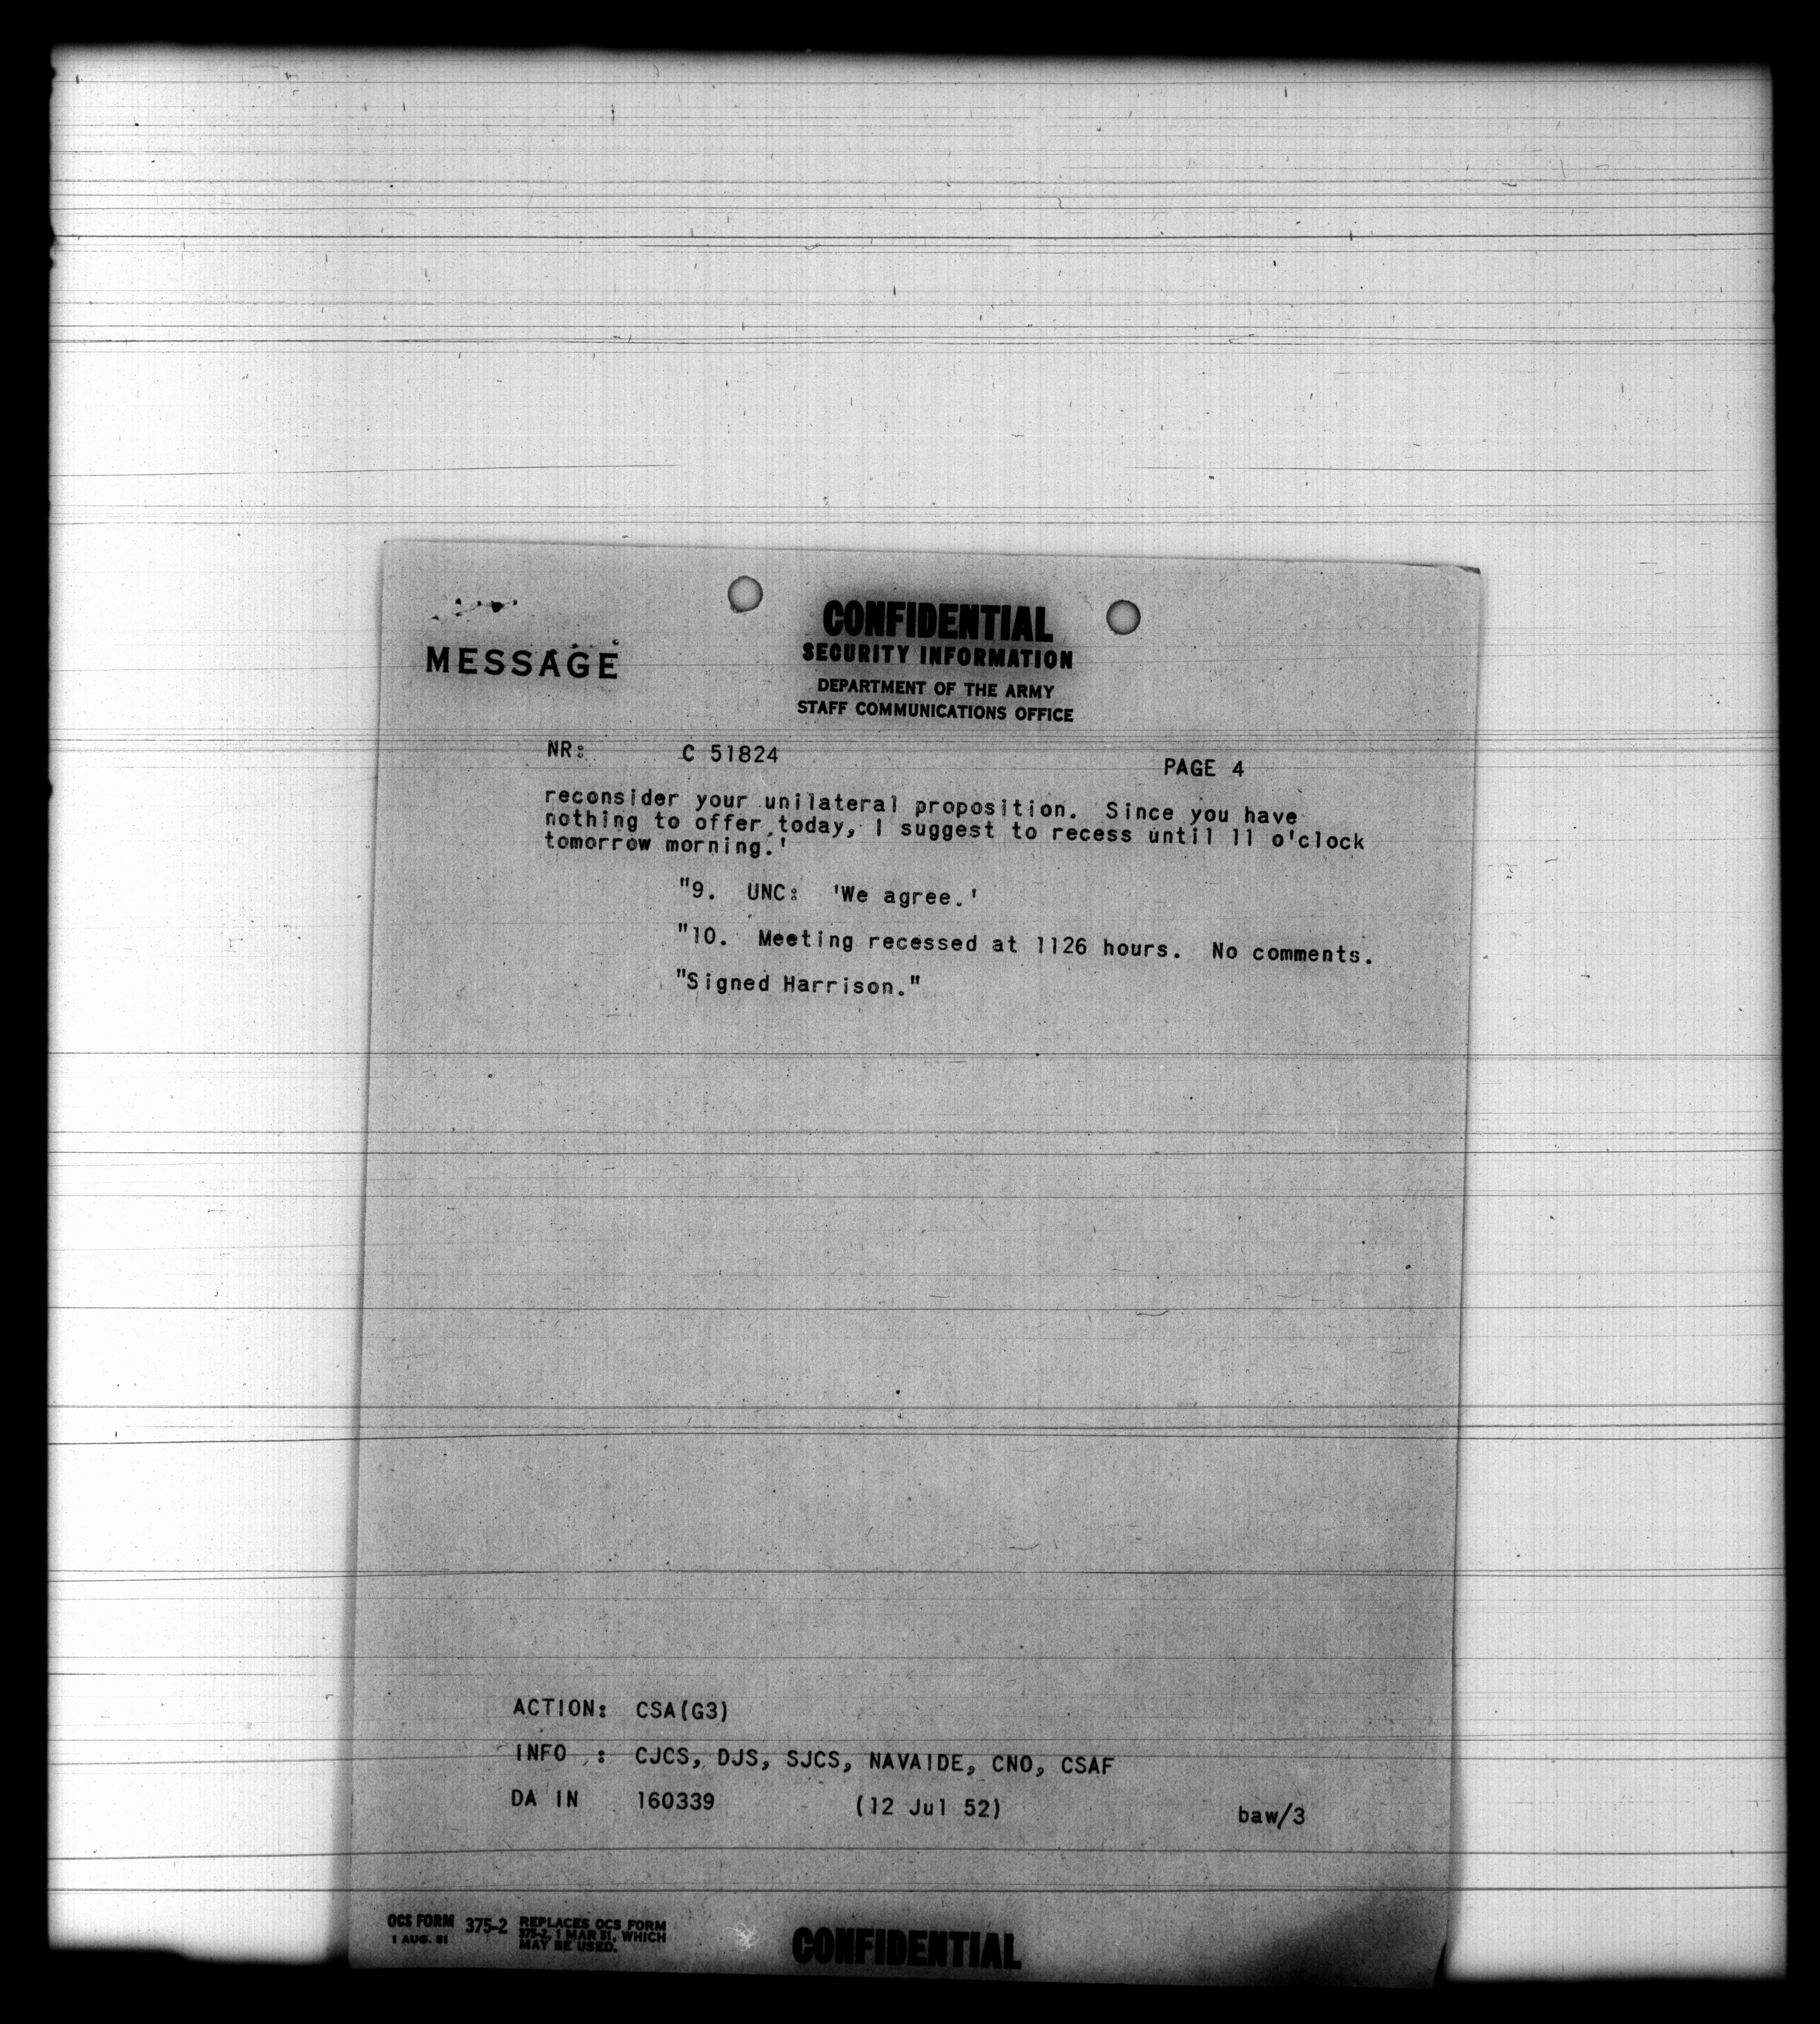 CONFIDENTIAL
SECURITY INFORMATION
MESSAGE
DEPARTMENT OF THE ARMY
STAFF COMMUNICATIONS OFFICE
NR: C 51824 PAGE 4
reconsider your unilateral proposition. Since you have
nothing to offer today, I suggest to recess until 11 o'clock
tomorrow morning.'
"9. UNC: 'We agree.'
"10. Meeting recessed at 1126 hours. No comments.
"Signed Harrison."
ACTION: CSA(G3)
INFO : CJCS, DJS, SJCS, NAVAIDE, CNO, CSAF
DA IN 160339 (12 Jul 52) baw/3
OCS FORM 375-2 REPLACES OCS FORM
1 AUG. 51 375-2, 1 MAR 51, WHICH
MAY BE USED.
CONFIDENTIAL